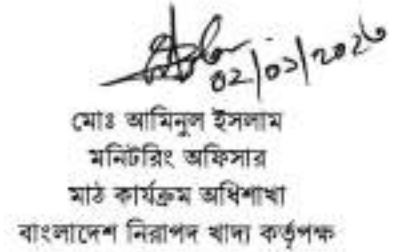 02/03/2026
মোঃ আমিনুল ইসলাম
মনিটরিং অফিসার
মাঠ কার্যক্রম অধিশাখা
বাংলাদেশ নিরাপদ খাদ্য কর্তৃপক্ষ